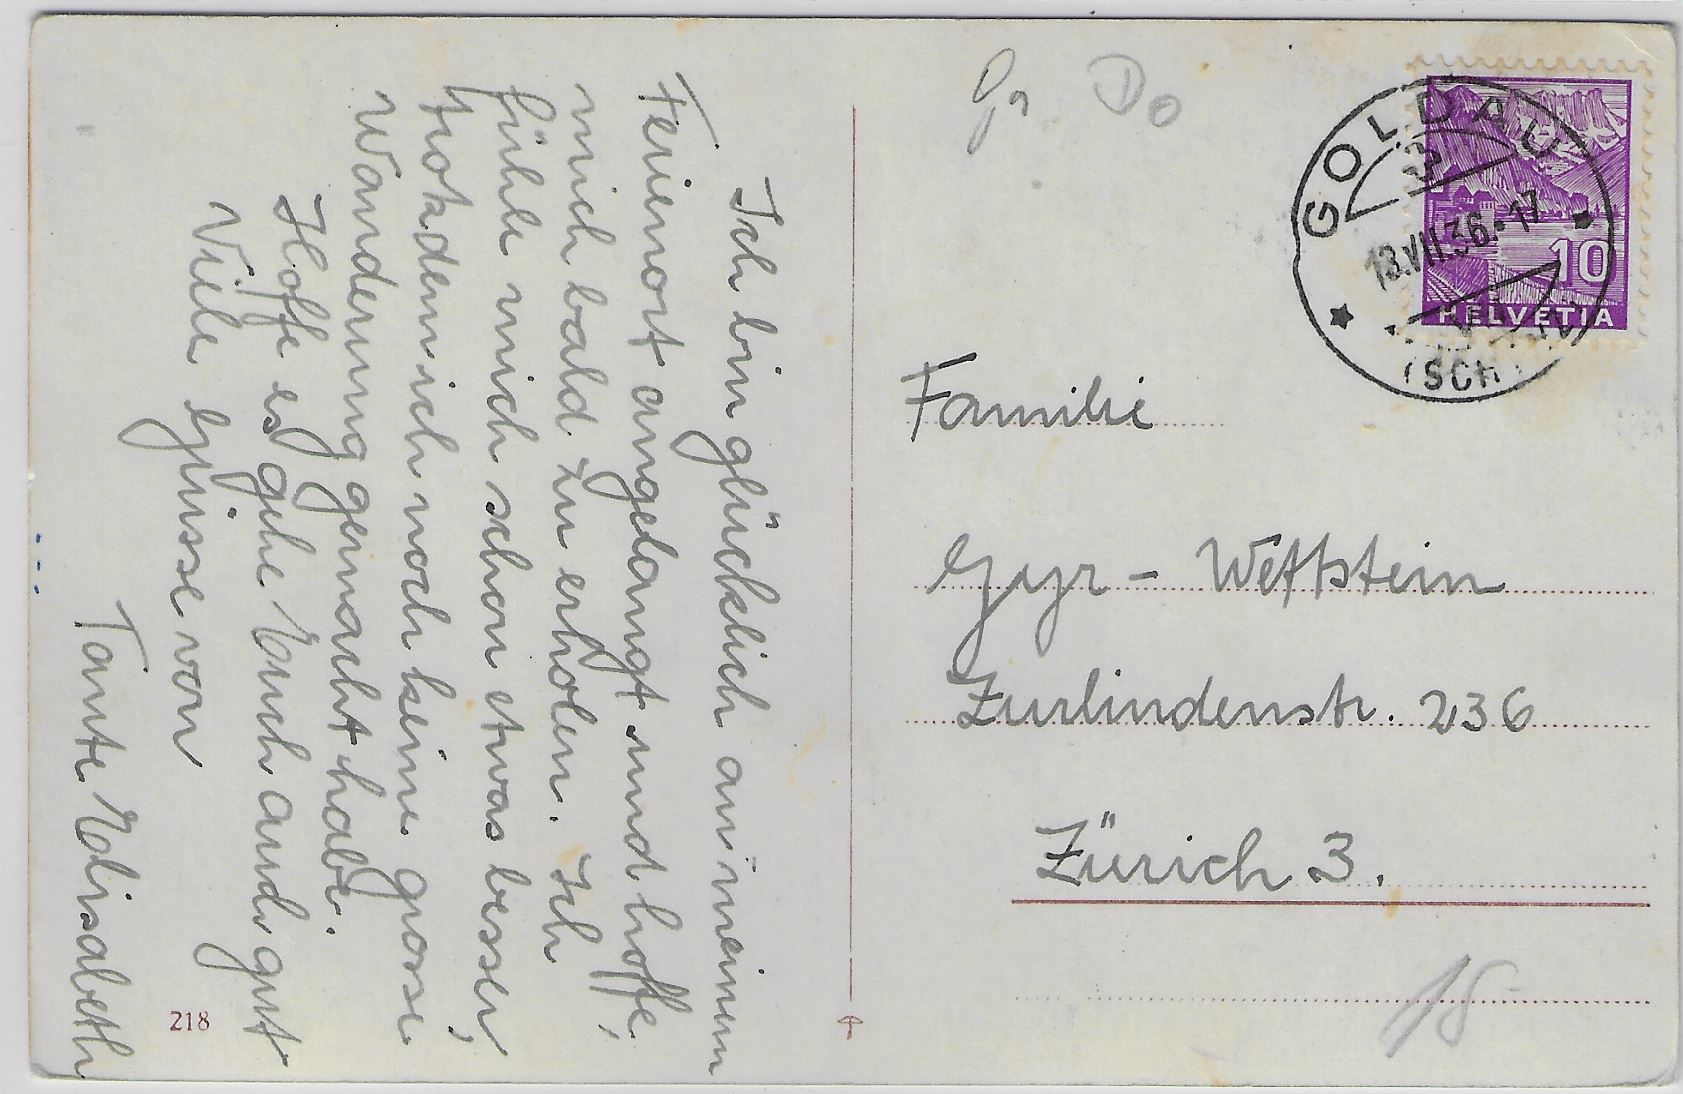 Ich bin glücklich an meinem
Ferienort angelangt und hoffe,
mich bald zu erholen. Ich
fühle mich schon etwas besser,
trotzdem ich noch keine grosse
Wanderung gemacht habe.
Hoffe es gehe Euch auch gut
Viele Grüsse von
Tante Elisabeth
218
Do
GOLDAU
13.VII.36.-17
(SCH
10
HELVETIA
Familie
Gyr - Wettstein
Zurlindenstr. 236
Zürich 3.